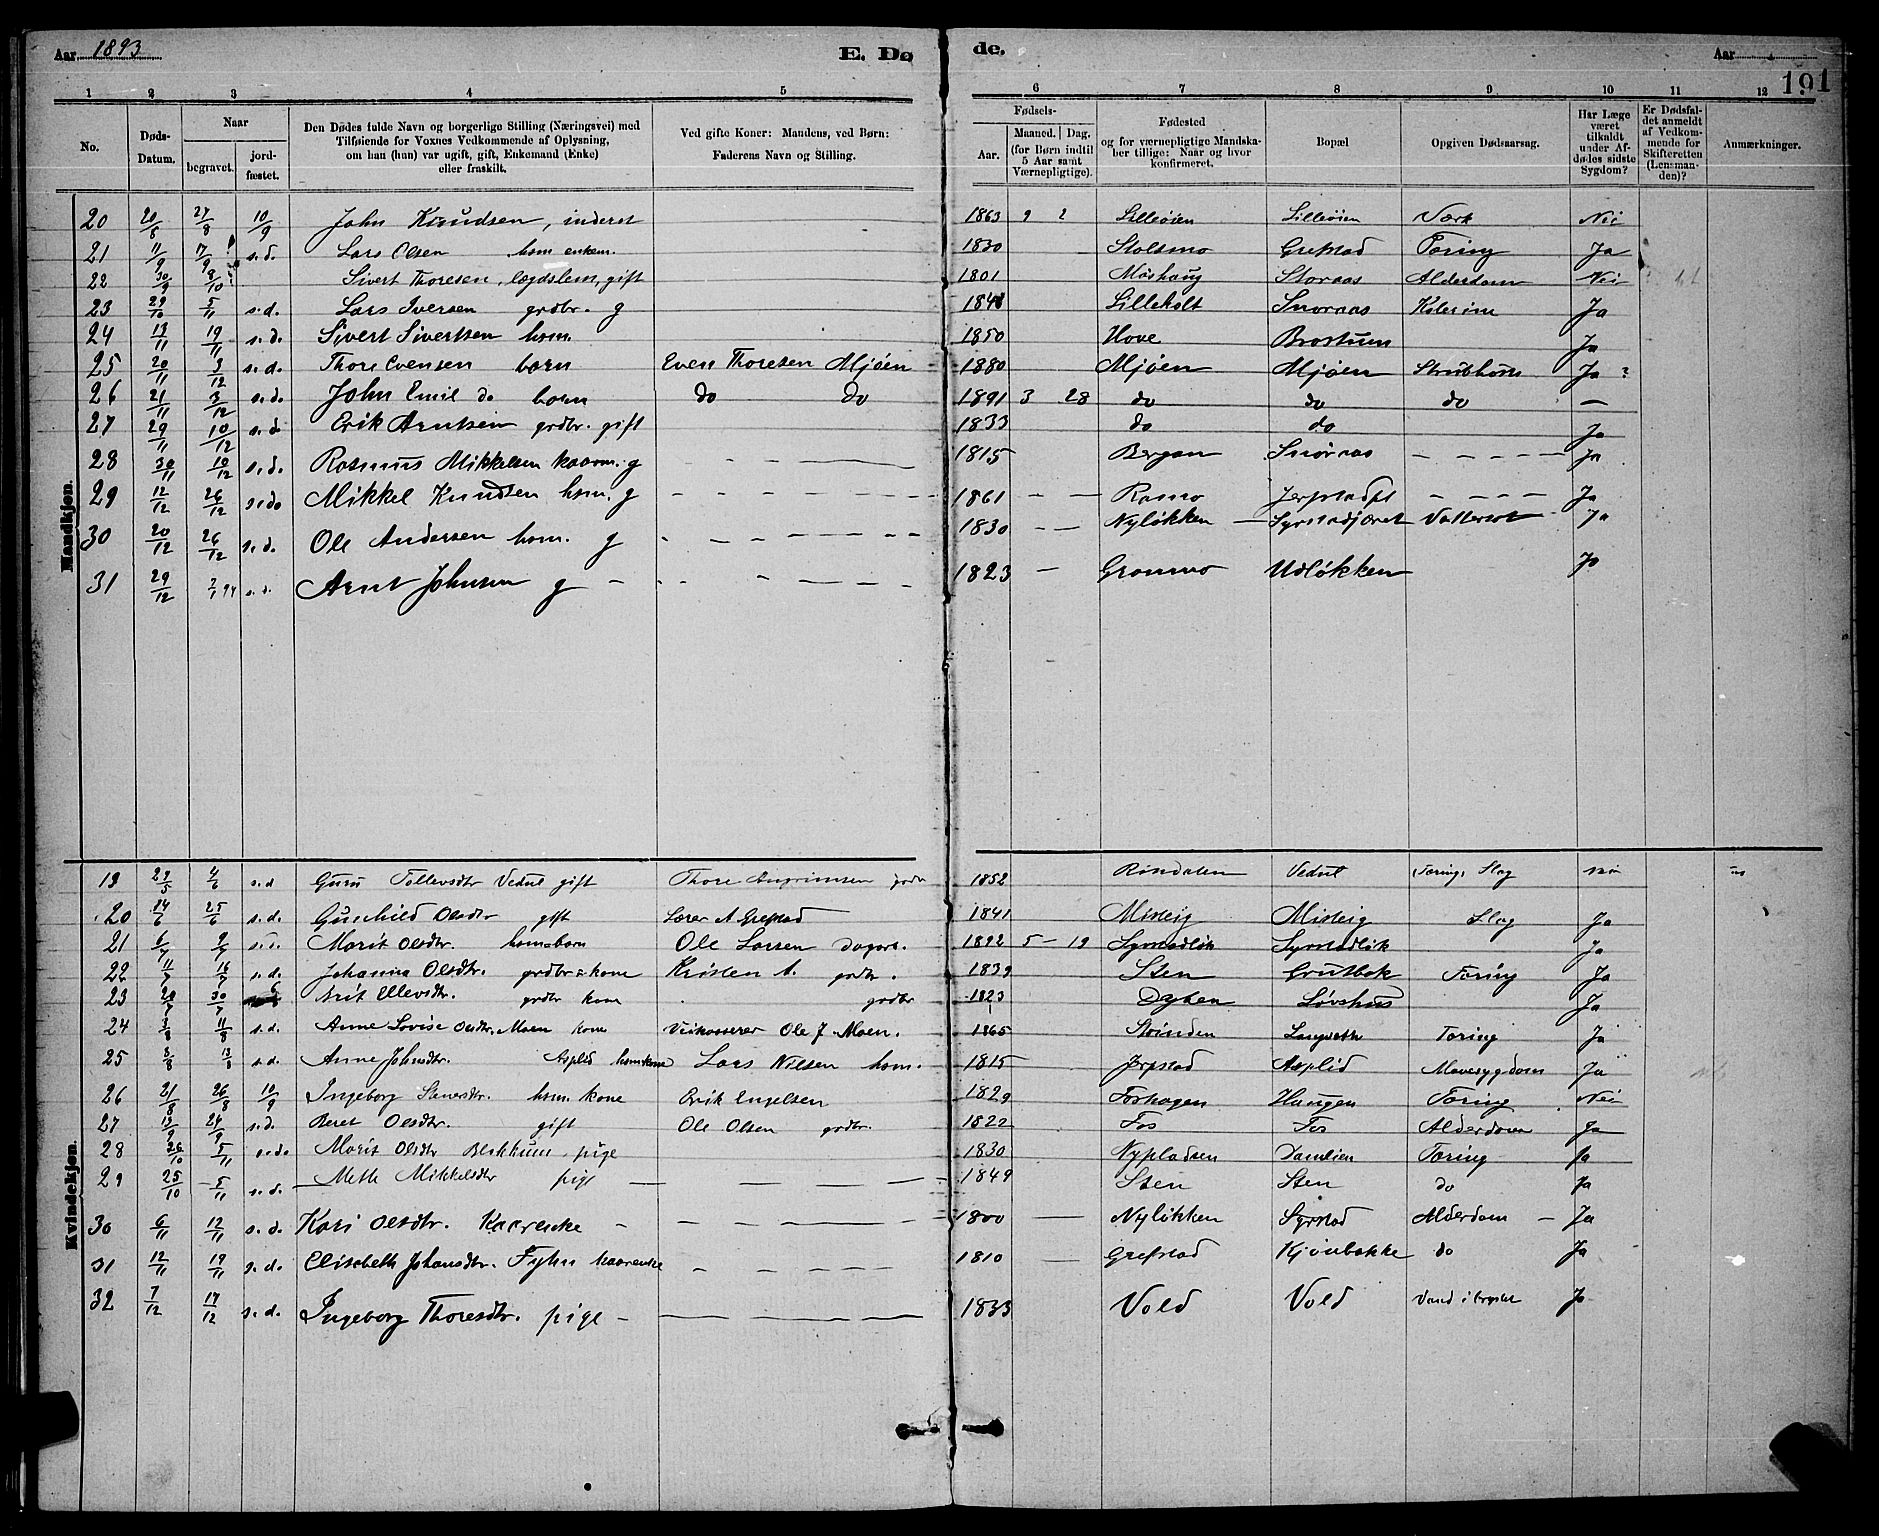 Aar 1893 E. Dø
de. Aar
191
1 2 3 4 5 6 7 8 9 10 11 12
No. Døds-Datum. Naar begravet. jordfæstet. Den Dødes fulde Navn og borgerlige Stilling (Næringsvei) med Tilføiende for Voxnes Vedkommende af Oplysning, om han (hun) var ugift, gift, Enkemand (Enke) eller fraskilt. Ved gifte Koner: Mandens, ved Børn: Faderens Navn og Stilling. Fødsels- Aar. Maaned. Dag. (for Børn indtil 5 Aar samt Værnepligtige). Fødested og for værnepligtige Mandskaber tillige: Naar og hvor konfirmeret. Bopæl Opgiven Dødsaarsag. Har Læge været tilkaldt under Afdødes sidste Sygdom? Er Dødsfaldet anmeldt af Vedkommende for Skifteretten (Lensmanden)? Anmærkninger.
Mandkjøn.
20 20/8 27/8 10/9 John Knudsen, inderst 1863 9 2 Lilleøien Lilleøien Værk Nei
21 11/9 17/9 s.d. Lars Olsen hsm enkem. 1830 Stolsmo Grefstad Tæring Ja
22 30/9 8/10 Sivert Thoresen, lægdslem, gift 1801 Måshaug Storaas Alderdom Nei
23 29/10 5/11 s.d. Lars Iversen grdbr. g 1841 Lilleholt Snoraas Kolerine Ja
24 13/11 19/11 s.d. Sivert Sivertsen hsm. 1850 Hove Brostuen Ja
25 20/11 3/12 s.d. Thore Evensen barn Even Thoresen Mjøen 1880 Mjøen Mjøen Strubhoste Ja ?
26 21/11 3/12 s.d. John Emil do barn do do 1891 3 28 do do do —
27 29/11 10/12 s.d. Erik Arntsen grdbr. gift 1833 do do Ja
28 30/11 10/12 s.d. Rasmus Mikkelsen kaarm. g 1815 Bergan Snøraas Ja
29 12/12 26/12 s.d. Mikkel Knudsen hsm. g 1861 Ramo Jerpstadpl Ja
30 20/12 26/12 s.d. Ole Andersen hsm. g 1830 Nyløkken Syrstadjæret Vattersot Ja
31 29/12 7/1 94 s.d. Arnt Johnsen g 1823 Granmo Udløkken Ja
Kvindekjøn.
19 29/5 4/6 s.d Guru Tollevsdtr Vedul gift Thore grdbr 1852 Røndalen Vedul Tæring, Slag Nei
20 14/6 25/6 s.d. Gunhild Olsdtr gift Lærer A Grefstad 1841 Misteig Misteig Slag Ja
21 1/7 9/7 s.d. Marit Olsdtr. hsmsbarn Ole Larsen Dagarb. 1892 5 — 19 Syrstadløk Syrstadløk Ja
22 11/7 16/7 s.d. Johanna Olsdtr. grdbr kone Kristen A. grdbr. 1839 Sten Grutbak Tæring Ja
23 20/7 30/7 Brit Ellevsdtr. grdbr kone grdbr 1823 Dyben Løvshus Ja
24 3/8 11/8 s.d. Anne Lovise Olsdtr. Moen kone Veikasserer Ole J. Moen. 1865 Stinden Langseth Tæring Ja
25 3/8 13/8 s.d. Anne Johnsdtr. Asplid hsmkone Lars Nilsen hsm. 1815 Jerpstad Asplid Mavesygdom Ja
26 21/8 26/8 10/9 Ingeborg Larsdtr. hsm. kone Erik Engelsen 1829 Foshagen Haugen Tæring Nei
27 13/9 24/9 s.d. Beret Olsdtr. gift Ole Olsen grdbr. 1822 Fos Fos Alderdom Ja
28 26/10 5/11 s.d. Marit Olsdtr Blekkum, pige 1830 Nypladsen Damlien Tæring Ja
29 25/10 5/11 s.d. Mette Mikkelsdtr pige 1849 Sten Sten do Ja
30 6/11 12/11 s.d. Kari Olsdtr. Kaarenke 1800 Nyløkken Syrstad Alderdom — Ja
31 12/11 19/11 s.d. Elisabeth Johansdtr. Fyhn kaarenke 1810 Grefstad Kjønbakke do Ja
32 7/12 17/12 s.d. Ingeborg Thoresdtr. pige 1833 Vold Vold Vand i brystet Ja